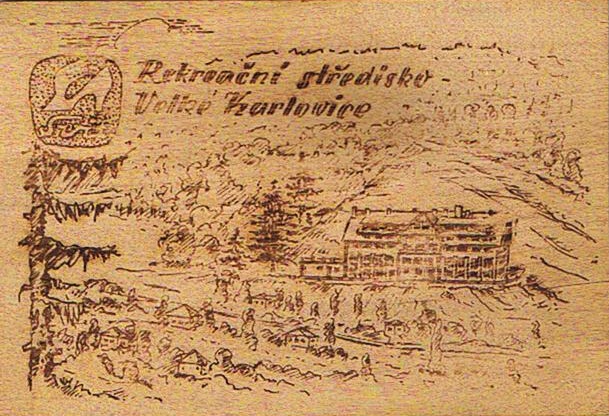 Rekreační středisko
Velké Karlovice